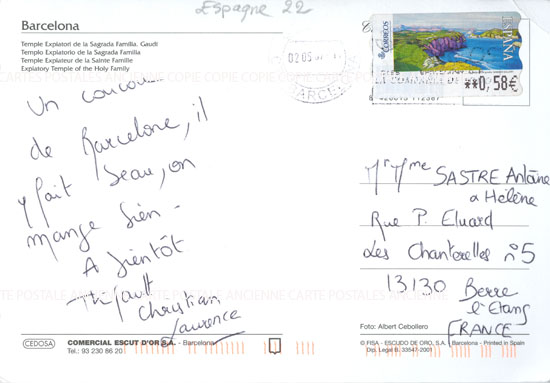 Espagne 22
Barcelona
Temple Expiatori de la Sagrada Família. Gaudí
Templo Expiatorio de la Sagrada Familia
Temple Expiateur de la Sainte Famille
Expiatory Temple of the Holy Family
CORREOS
ESPAÑA
**0,58€
02 05
BARCEL
8 420015 112367
CARTES POSTALES ANCIENNE COPIE COPIE COPIE COPIE
Un coucou
de Barcelone, il
y fait beau, on
mange bien -
A bientôt
Thifault
Christian
Laurence
Mr Mme SASTRE Antoine
a Hélène
Rue P. Eluard
Les Chanterelles n°5
13130 Berre
l'Etang
FRANCE
CARTE POSTALE ANCIENNE
Foto: Albert Cebollero
CEDOSA
COMERCIAL ESCUT D'OR S.A. - Barcelona
Tel.: 93 230 86 20
© FISA - ESCUDO DE ORO, S.A. Barcelona - Printed in Spain
Dip. Legal B. 33547-2001